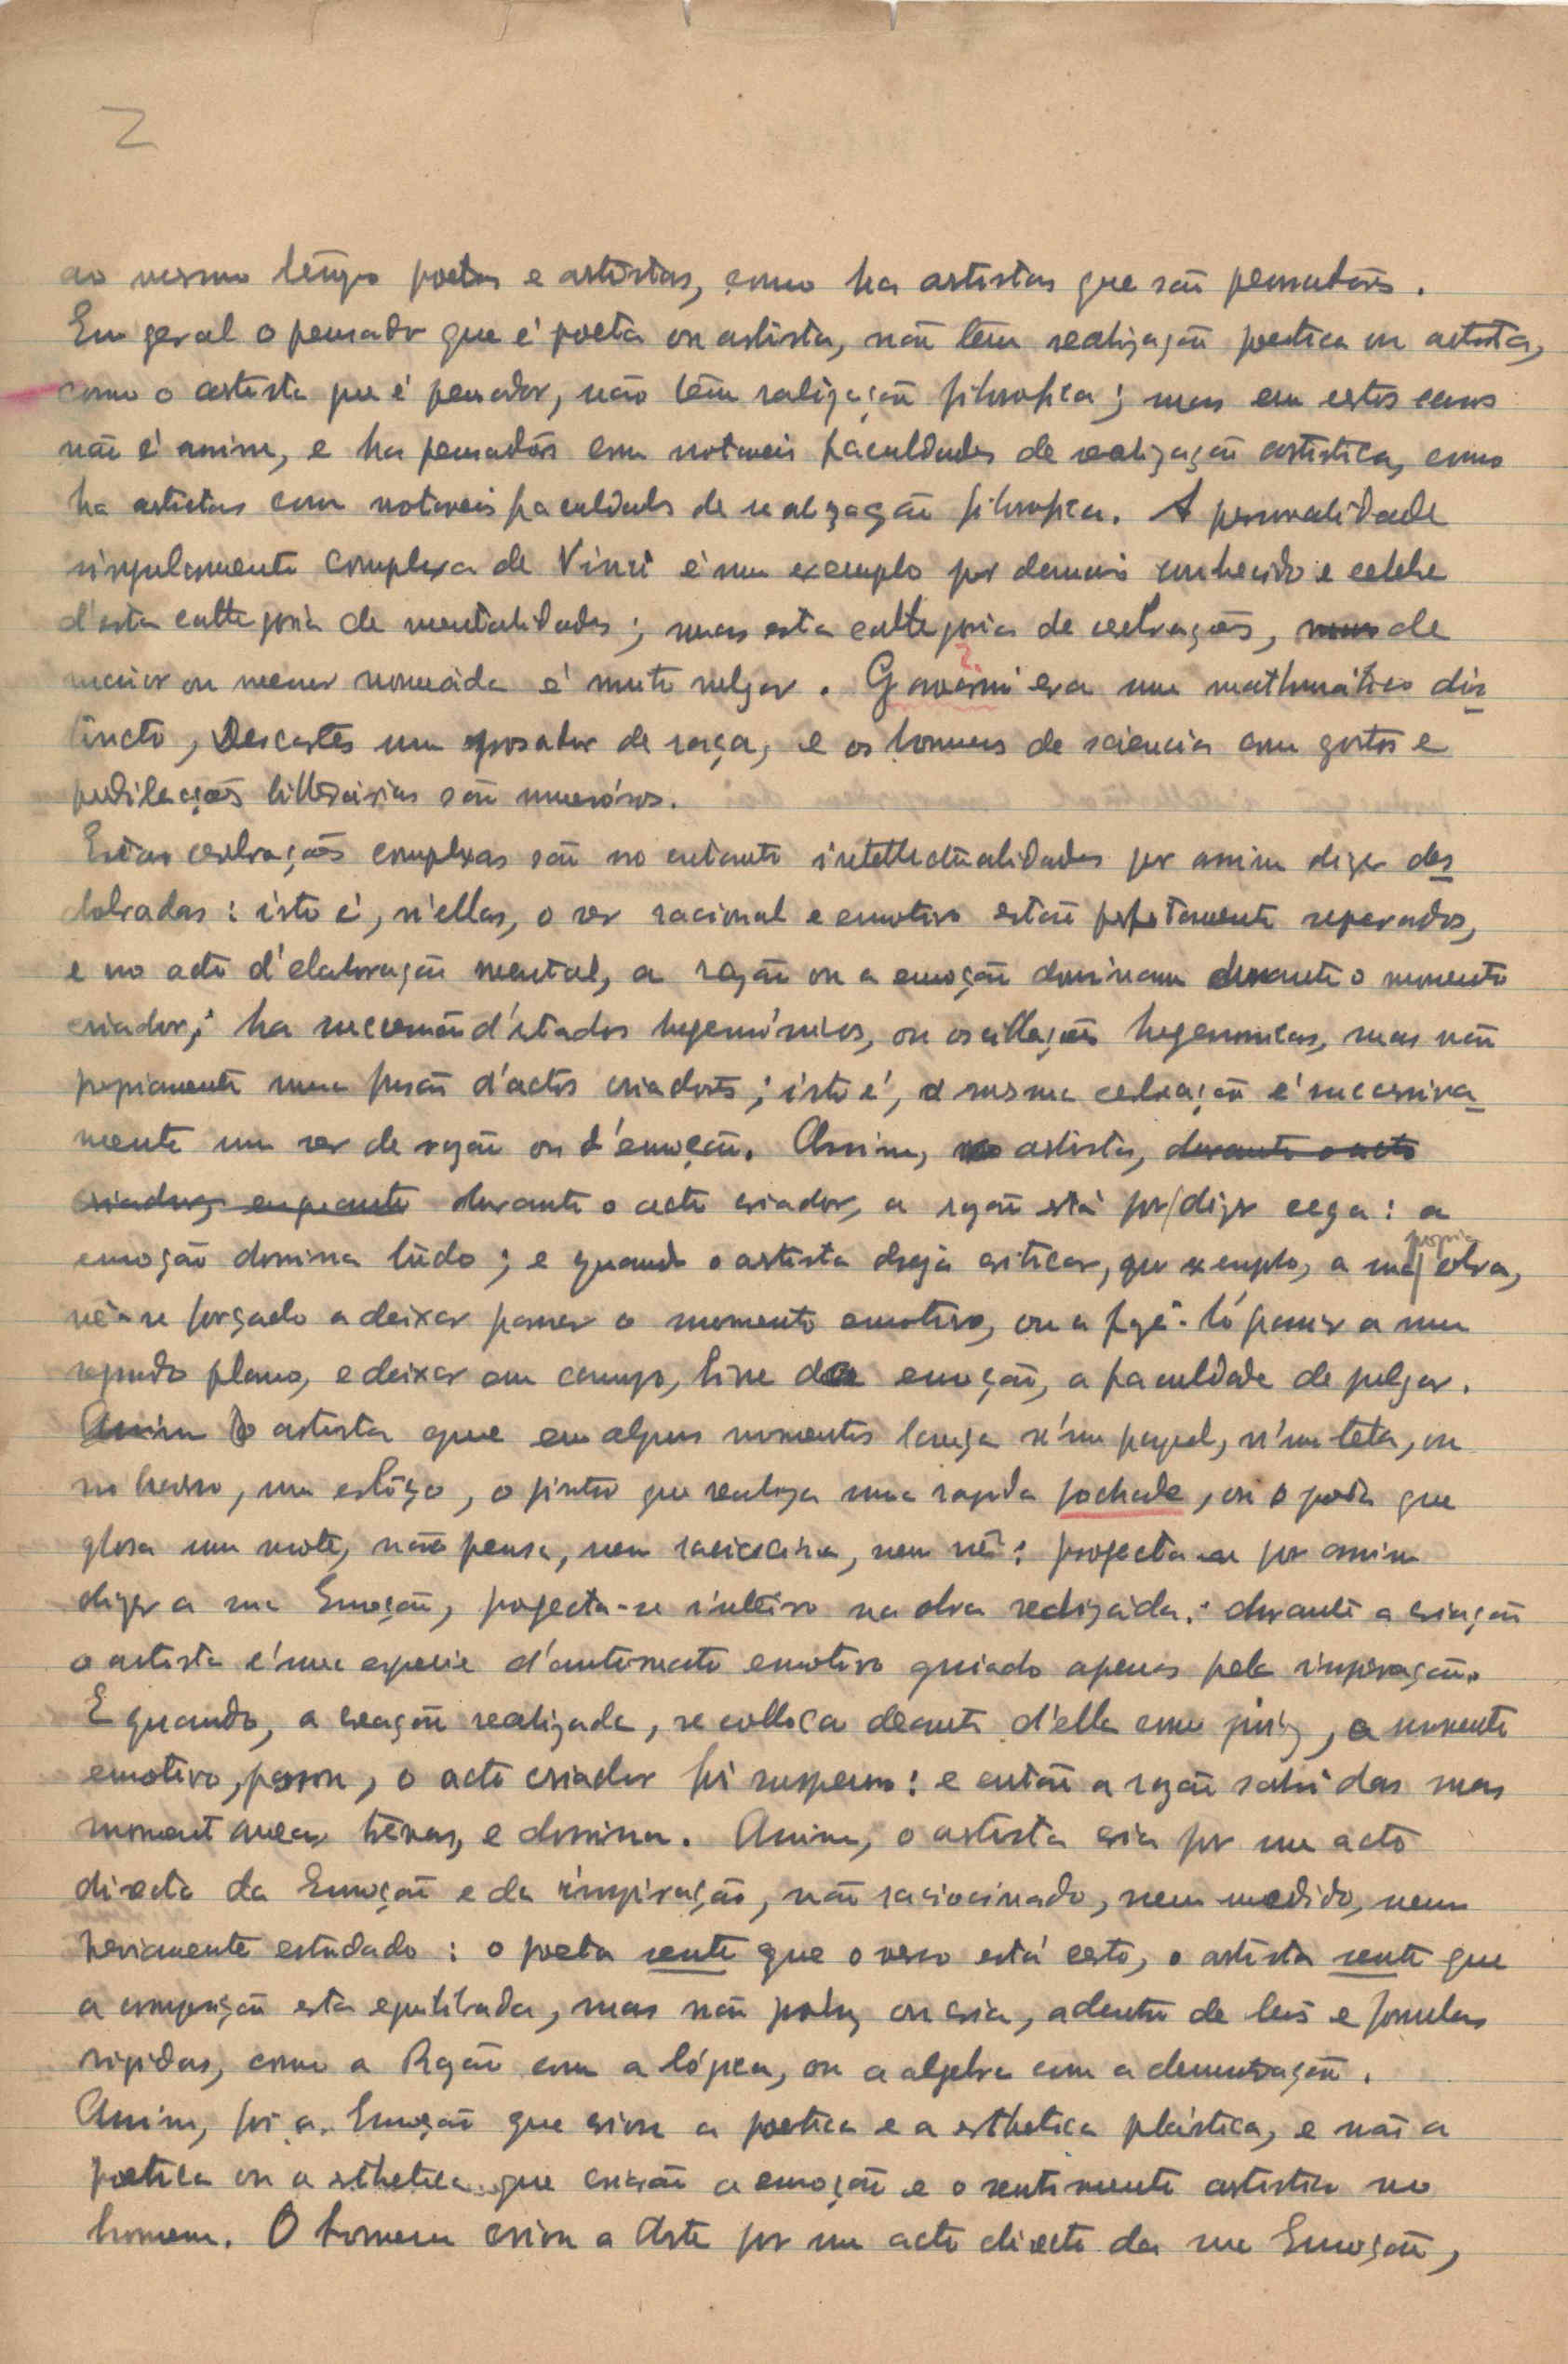 2
ao mesmo tempo poetas e artistas, como ha artistas que são pensadores.
Em geral o pensador que é poeta ou artista, não tem realização poetica ou artista,
como o artista que é pensador, não têm realização filosofica; mas em certos casos
não é assim, e ha pensadores com notaveis faculdades de realização artistica, como
ha artistas com notaveis faculdades de realização filosofica. A personalidade
singularmente complexa de Vinci é um exemplo por demais conhecido e celebre
d'esta cathegoria de mentalidades; mas esta cathegoria de cerebrações, mas de
maior ou menor nomeáda é muito vulgar. Gavarni era um mathemático dis
tincto, Descartes um prosador de raça, e os homens de sciencia com gostos e
predileções litterárias são numerósos.
Estas cerebrações complexas são no entanto intellectualidades por assim dizer des
dobradas: isto é, n'ellas, o ser racional e emotivo estão perfeitamente separados,
e no acto d'elaboração mental, a razão ou a emoção dominam durante o momento
criador; ha sucessão d'estados hegemónicos, ou oscillações hegemonicas, mas não
propriamente uma fusão d'actos criadores; isto é, a mesma cerebração é sucessiva
mente um ser de razão ou d'emoção. Assim, no artista, durante o acto
criador, enquanto durante o acto criador, a razão está por/dizer cega: a
emoção domina tudo; e quando o artista deseja criticar, por exemplo, a sua propria obra,
vê-se forçado a deixar passar o momento emotivo, ou a fazê-ló passar a um
segundo plano, e deixar em campo, livre da emoção, a faculdade de julgar.
Assim O artista que em alguns momentos lança n'um papel, n'uma tela, ou
no barro, um esboço, o pintor que realiza uma rapida pochade, ou o poeta que
glosa um mote, não pensa, nem raciocina, nem vê: projecta-se por assim
dizer a sua Emoção, projecta-se inteiro na obra realizada: durante a criação
o artista é uma especie d'automato emotivo guiado apenas pela inspiração.
E quando, a creação realizada, se colloca deante d'ella como juiz, o momento
emotivo, passou, o acto criador foi suspenso: e então a razão sahi das suas
momentaneas trévas, e domina. Assim, o artista cria por um acto
directo da Emoção e da inspiração, não raciocinado, nem medido, nem
previamente estudado: o poeta sente que o verso está certo, o artista sente que
a composição esta equilibrada, mas não produz, ou cria, adentro de leis e formulas
rigidas, como a Razão com a lógica, ou a algebra com a demonstração.
Assim, foi a Emoção que criou a poetica e a esthetica plástica, e não a
poetica ou a esthetica que criarão a emoção e o sentimento artistico no
homem. O homem criou a Arte por um acto directo da sua Emoção,